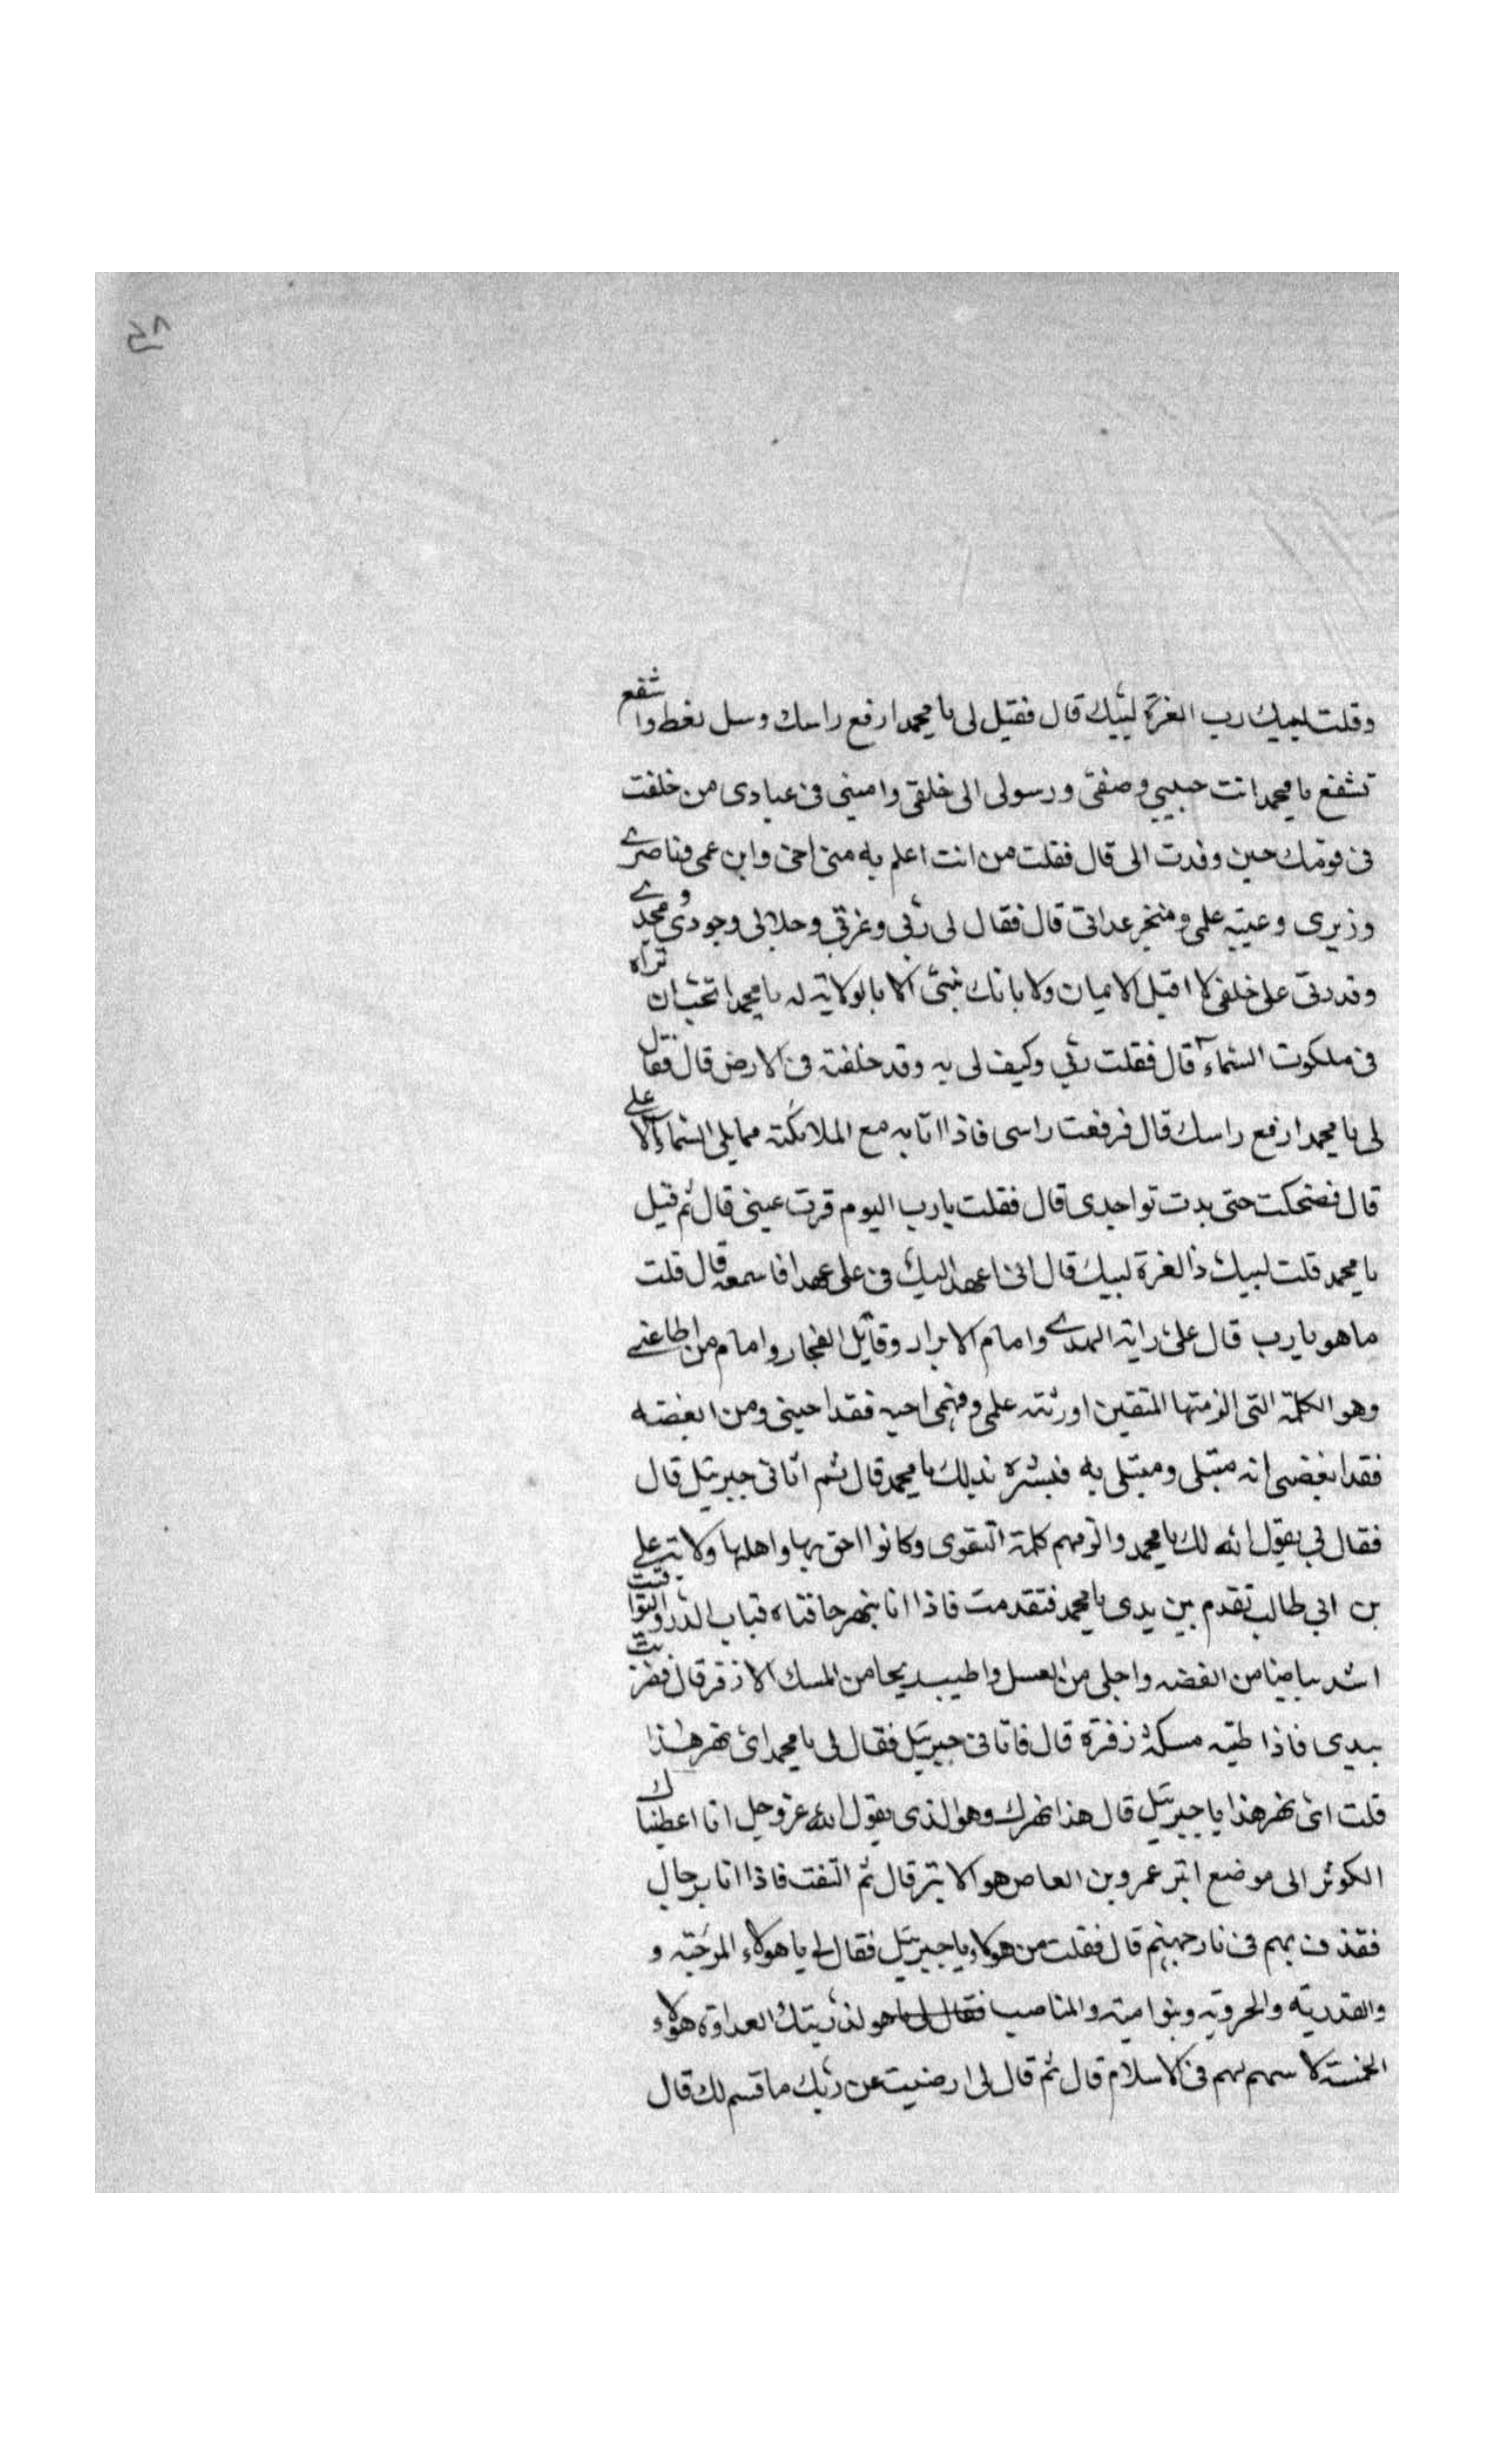 ٣٨
وقلت لبيك رب العزة لبيك قال فقيل لى يا محمد ارفع راسك وسل تعط واشفع
تشفع يا محمد انت حبيبي وصفتي ورسولى الى خلقى وامينى فى عبادى من خلفت
فى قومك حين وفدت الى قال فقلت من انت اعلم به منى اخى وابن عمى وناصرى
وزيرى وعيبه علمى ومنجز عداتى قال فقال لى ربى وعزتى وجلالى وجودى ومجدى
وقدرتى على خلقى لا اقبل الايمان ولا بانك نبيى الا بالولاية له يا محمد اتحب ان تراه
فى ملكوت السماء قال فقلت ربى وكيف لى به وقد خلفته فى الارض قال فقال
لى يا محمد ارفع راسك قال فرفعت راسى فاذا انا به مع الملائكة مما يلى السماء الاعلى
قال فضحكت حتى بدت نواجدى قال فقلت يا رب اليوم قرت عينى قال ثم قيل
يا محمد قلت لبيك ذا العزة لبيك قال انى اعهد اليك فى على عهدا فاسمعه قال قلت
ما هو يا رب قال على راية الهدى وامام الابرار وقاتل الفجار وامام من اطاعنى
وهو الكلمة التى الزمتها المتقين اورثته علمى وفهمى احبه فقد احبنى ومن ابغضه
فقد ابغضنى انه مبتلى ومبتلى به فبشره بذلك يا محمد قال ثم اتانى جبرئيل قال
فقال لى يقول الله لك يا محمد والزمهم كلمة التقوى وكانوا احق بها واهلها ولاية على
بن ابي طالب تقدم بين يدى يا محمد فتقدمت فاذا انا بنهر حافتاه قباب الدر واليواقيت
اشد بياضا من الفضه واحلى من العسل واطيب ريحا من المسك الاذفر قال فضربت
بيدى فاذا طيه مسكة ذفرة قال فاتانى جبرئيل فقال لى يا محمد اى نهر هذا
قلت اى نهر هذا يا جبرئيل قال هذا نهرك وهو الذى يقول الله عز وجل انا اعطيناك
الكوثر الى موضع ابتر عمرو بن العاص هو الابتر قال ثم التفت فاذا انا برجال
فقذف بهم فى نار جهنم قال فقلت من هولاء يا جبرئيل فقال لى يا هولاء المرجيه و
والقدريه والحروريه وبنوامية والمناصب فقال لى يا هو لذريتك العداوة هولاء
الخمسة لا سهم لهم فى الاسلام قال ثم قال لى ارضيت عن ربك ما قسم لك قال